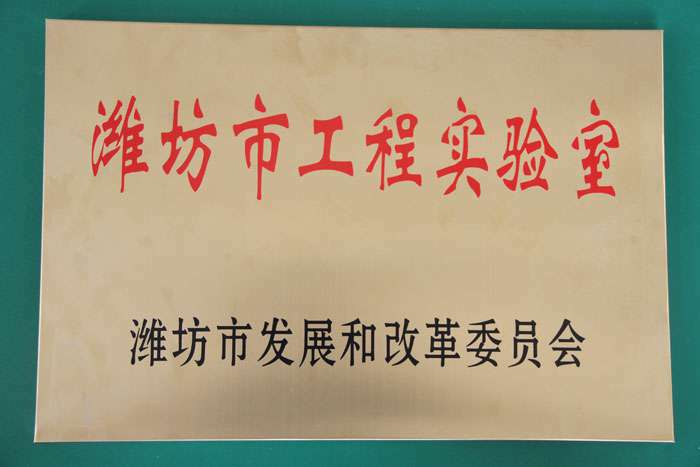 潍坊市工程实验室
潍坊市发展和改革委员会